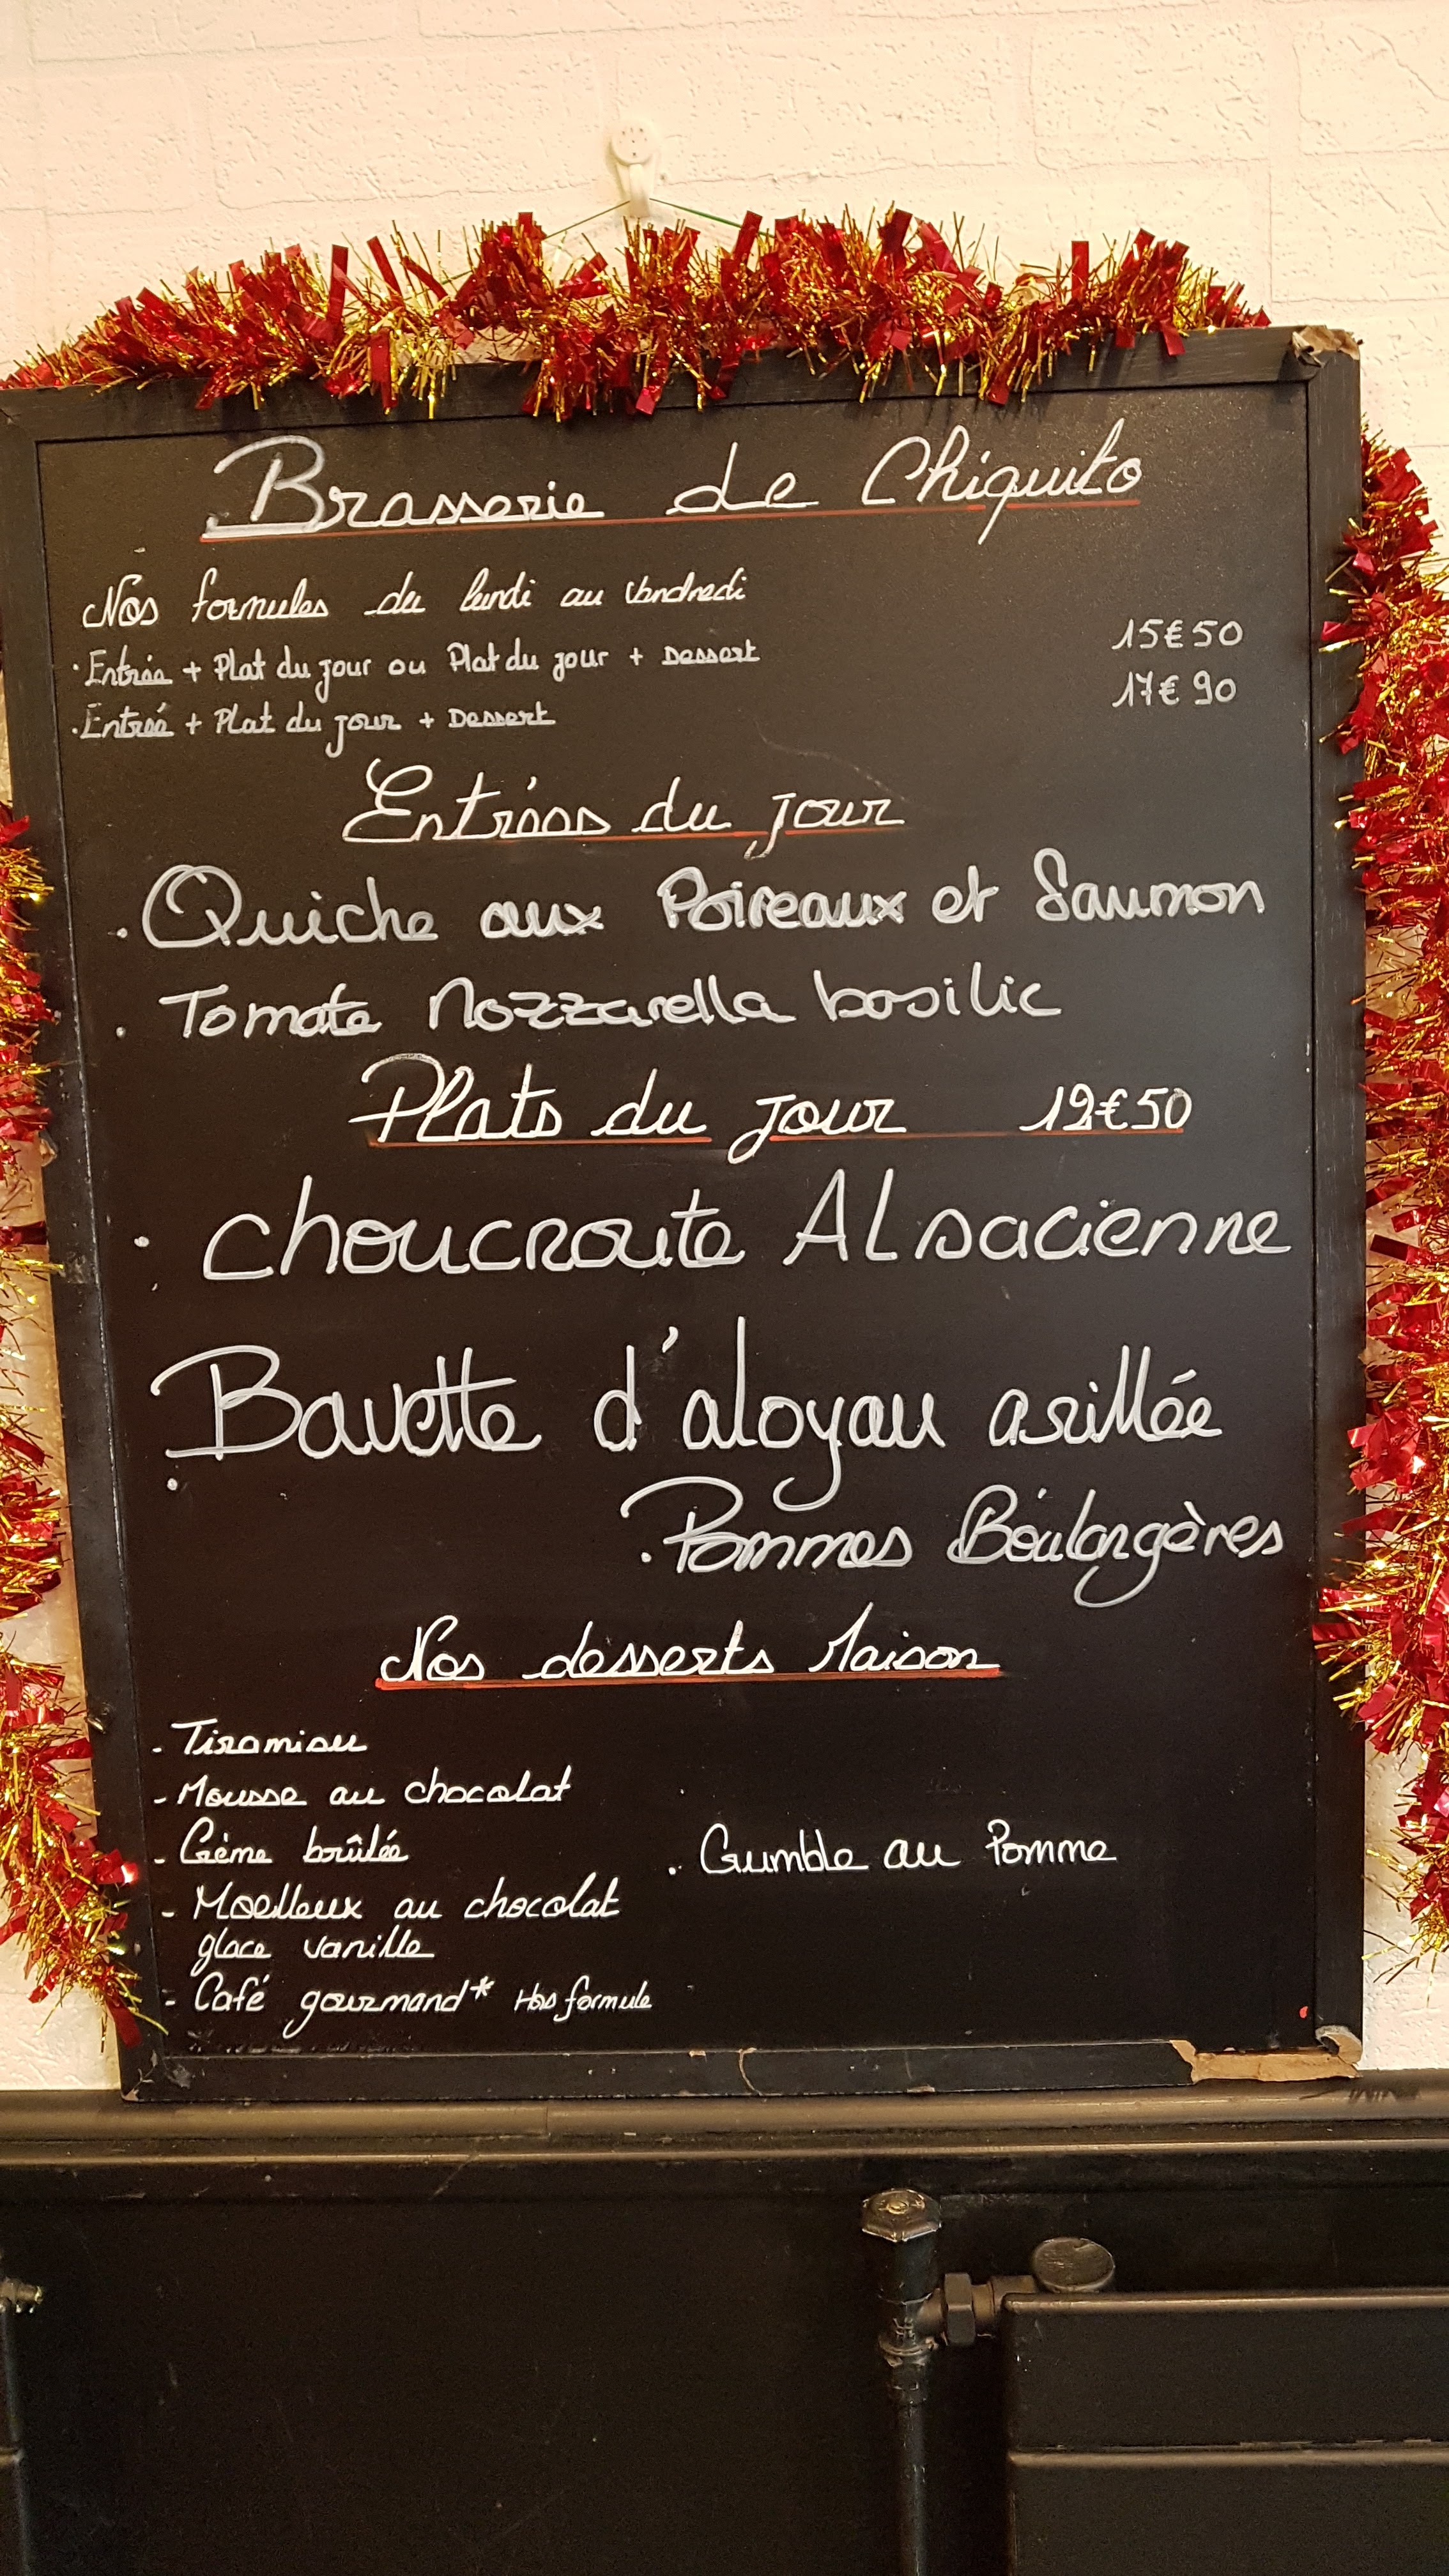 Brasserie de Chiquito
Nos formules du lundi au Vendredi
· Entrée + Plat du jour ou Plat du jour + Dessert 15€50
· Entrée + Plat du jour + Dessert 17€90
Entrées du jour
· Quiche aux Poireaux et Saumon
· Tomate Mozzarella basilic
Plats du jour 12€50
· choucroute Alsacienne
· Bavette d'aloyau grillée
· Pommes Boulangères
Nos desserts Maison
- Tiramisu
- Mousse au chocolat
- Crème brûlée
· Crumble au Pomme
- Moelleux au chocolat
glace vanille
- Café gourmand* Hors formule